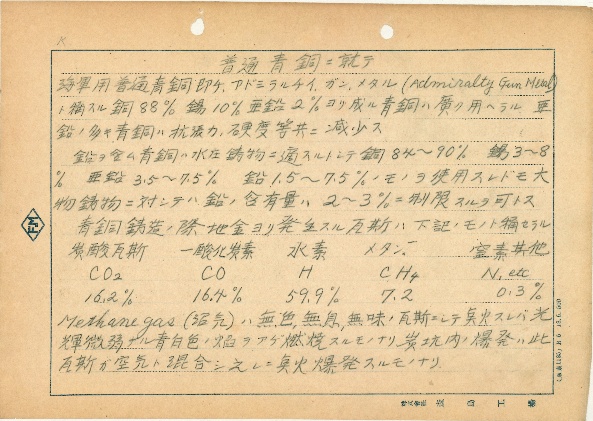 普通青銅ニ就テ
海軍用普通青銅即チ、アドミラルチイ、ガン、メタル (Admiralty Gun Metal)
ト稱スル銅88% 錫10% 亜鉛2%ヨリ成ル青銅ハ廣ク用ヘラル 亜
鉛ノ多キ青銅ハ抗張力、硬度等共ニ減少ス
鉛ヲ含ム青銅ハ水圧鋳物ニ適スルトシテ銅84〜90% 錫3〜8
% 亜鉛3.5〜7.5% 鉛1.5〜7.5%ノモノヲ使用スレドモ大
物鋳物ニ対シテハ鉛ノ含有量ハ2〜3%ニ制限スルヲ可トス
青銅鋳造ノ際地金ヨリ発生スル瓦斯ハ下記ノモノト稱セラル
炭酸瓦斯 一酸化炭素 水素 メタン 窒素其他
CO2 CO H CH4 N, etc
16.2% 16.4% 59.9% 7.2 0.3%
Methane gas (沼気) ハ無色、無臭、無味ノ瓦斯ニシテ点火スレバ光
輝微弱ナル青白色ノ焔ヲアゲ燃焼スルモノナリ、炭坑内ノ爆発ハ此
瓦斯が空気ト混合シ之レニ点火爆発スルモノナリ
FM
株式会社